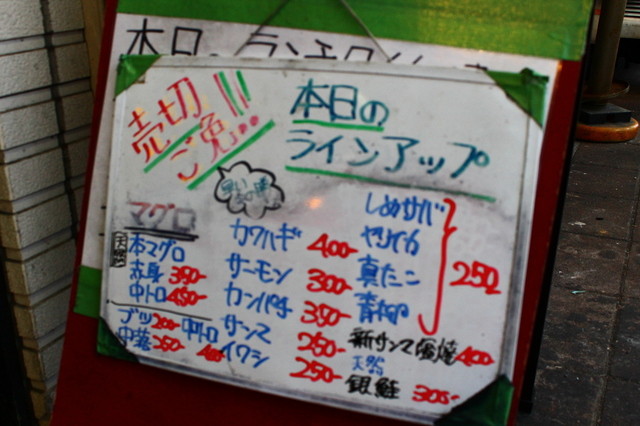 本日
売切
ご免!!!
本日の
ラインアップ
早い
マグロ
天然
本マグロ
赤身 350-
中トロ 450-
ブツ 200- 中トロ
中落 250-
カワハギ 400-
サーモン 300-
カンパチ 350-
サンマ 250-
イワシ 250-
しめサバ
やりイカ
真たこ
青柳
250
新サンマ塩焼 400-
天然
銀鮭 300-